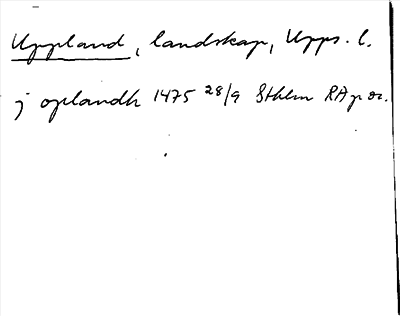 Uppland, landskap, Upps. l.
j oplandh 1475 28/9 Sthlm RAp or.